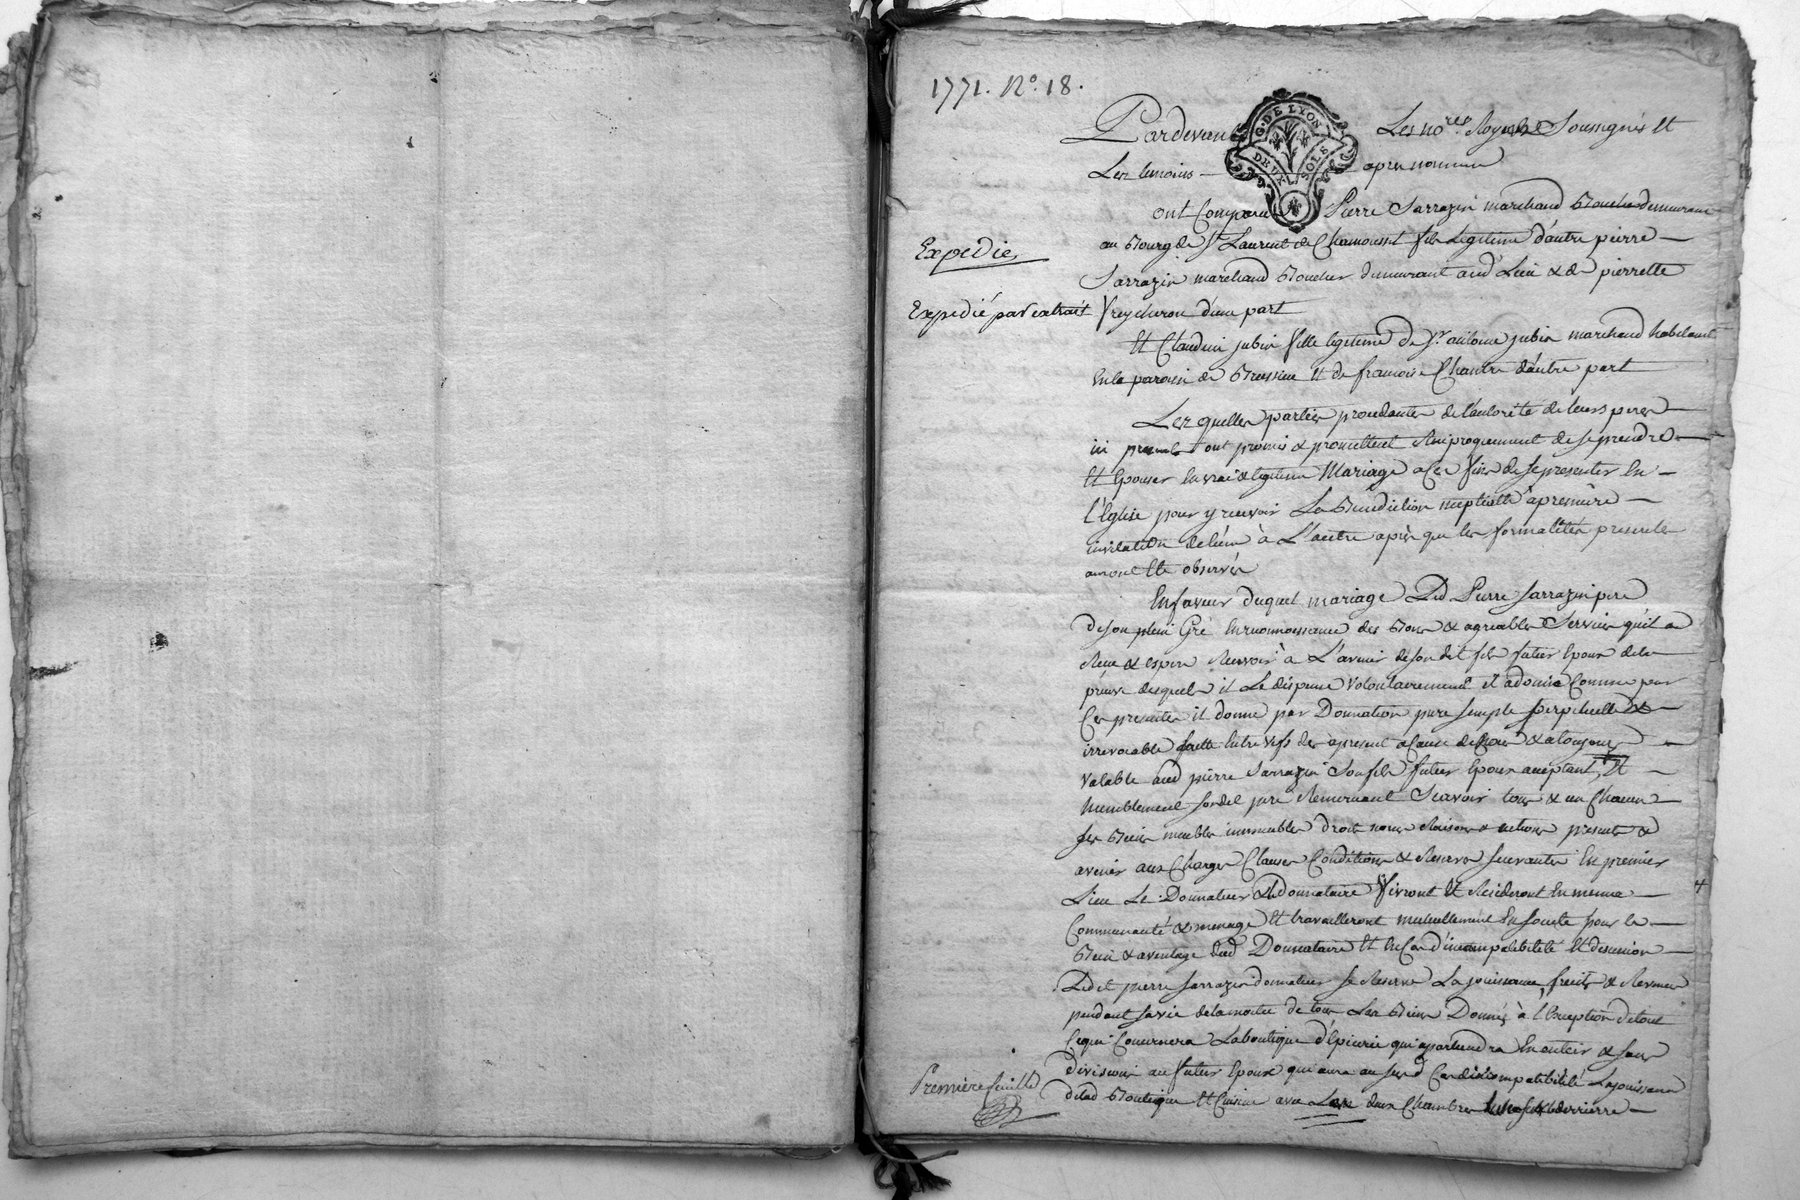 1771. No. 18.
G. DE LYON
DEUX SOLS
Pardevant Les nores Royaux Soussignés Et
Les temoins apres nommes
ont Comparu Pierre Sarrazin marchand Boucher demeurant
au Bourg de St Laurent de Chamousset fils Legitime d'autre pierre
Expedie
Sarrazin marchand Boucher demeurant aud Lieu & de pierrette
Expedié par extrait
d'une part
Et Claudine jubin fille legitime de Sr antoine jubin marchand habitant
En la paroisse de Bressieu Et de francoise Chantre d'autre part
Les quelles parties procedantes de l'autorité de leurs peres
ici presents ont promis & promettent Reciproquement de se prendre
Et Epouser En vrai & legitime Mariage a ces fins de se presenter En
L'Eglise pour y recevoir La Bénédiction nuptialle à premiere
invitation de l'un à L'autre après que les formalités
auront Eté observés
En faveur duquel mariage Led Pierre Sarrazin pere
de son plein Gré En reconnoissance des Bons & agreables Services qu'il a
Receu & espere Recevoir à L'avenir de son dit fils futur Epoux de la
preuve desquels il Le dispense Volontairement il a donné Comme par
Ces presentes il donne par Donnation pure simple perpetuelle &
irrevocable faitte Entre vifs des apresent a Cause de Noces & a toujours
Valable aud pierre Sarrazin Son fils futur Epoux acceptant Et
humblement sondit pere Remerciant Scavoir tous & un Chacun
ses Biens meubles immeubles droits noms Raisons & actions presents &
avenir aux Charges Clauses Conditions & Reserves suivantes En premier
Lieu Le Donnateur & Ledonnataire Vivront Et Resideront En meme
Communauté & menage Et travailleront mutuellement En société pour le
Bien & aventage dud Donnataire Et En Cas d'incompatibilité Et desunion
Ledit pierre Sarrazin donnateur se Reserve La jouissance, fruits & Revenus
pendant sa vie de la moitié de tous Les Biens Donnés à l'Exception de tout
Cequi Concernera La boutique d'Epicerie qui appartiendra En entier & sans
division au futur Epoux qui aura au susd Cas d'incompatibilité La jouissance
delad Boutique Et Cuisine avec Les deux Chambres derrierre
Première feuille